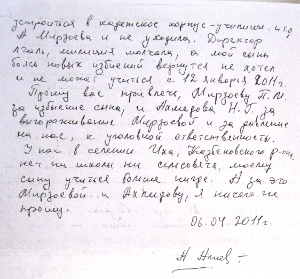 устроится в кадетское корпус-училищи. и т.д.
А Мирзоева и не уходила. Директор
лгаль, милиция молчала, а мой сын
боясь новых избиений вернутся не хотел
и не может учится с 12 января 2011г.
Прошу вас привлечь, Мирзоеву П.М.
за избиение сына, и Ахмедова Н.Г. за
выгораживание Мирзоевой и за давление
на нас, к уголовной ответственности.
У нас в селении Иха, Казбековского р-она,
нет ни школы ни сельсовета, моему
сыну учится больше негде. А за это
Мирзоевой и Ахмедову, я ничего не
прощу.
06.04.2011г.